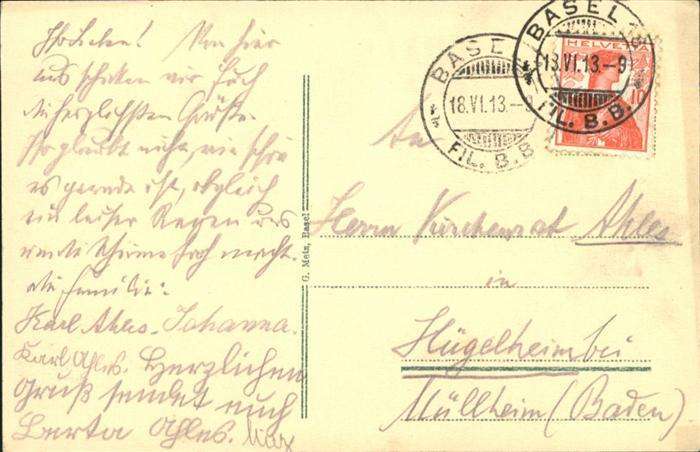 Von hier
aus schicken wir Euch
die herzlichsten Grüße.
Ihr glaubt nicht, wie schön
es gerade ist, obgleich
ein leiser Regen uns
macht.
die Familie:
Karl Ahles. Johanna.
Karl Ahles. Herzlichen
Gruß sendet euch
Berta Ahles. Max
G. Metz, Basel
BASEL
18.VI.13.-9
FIL. B.B.
BASEL
18.VI.13.-9
FIL. B.B.
HELVETIA
10
An
Herrn Kirchenrat Ahles
in
Hügelheim bei
Müllheim (Baden)